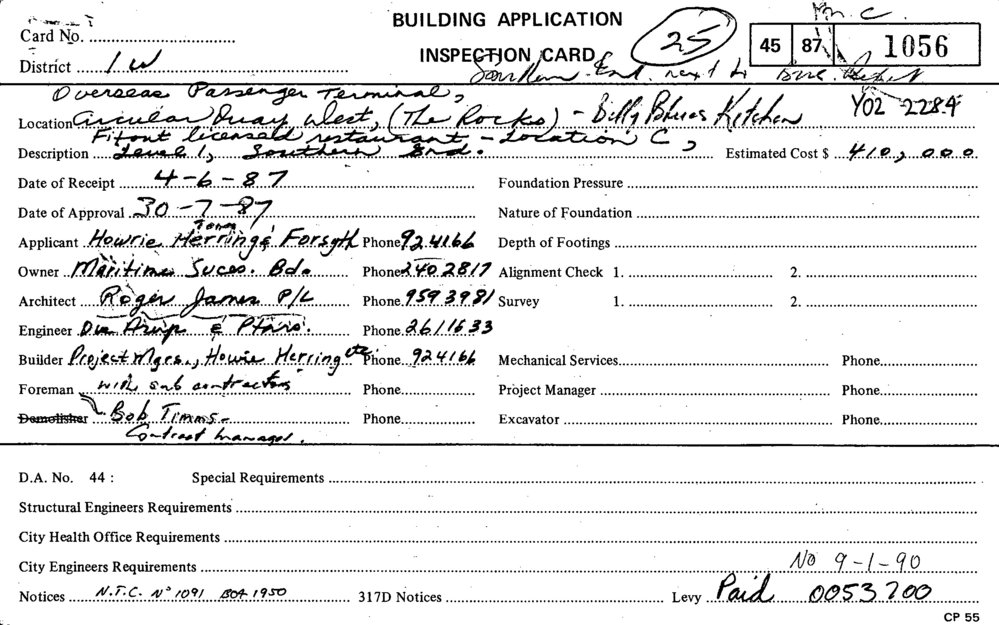 M.C.
BUILDING APPLICATION
Card No.
25
45 87 1056
INSPECTION CARD
District 1 W
Southern End next to
Overseas Passenger Terminal,
Location Circular Quay West, (The Rocks) - Billy Blues Kitchen Y02 2284
Fitout licensed restaurant - Location C,
Description Level 1, Southern End. Estimated Cost $ 410,000
Date of Receipt 4-6-87 Foundation Pressure
Date of Approval 30-7-87 Nature of Foundation
Applicant Howrie Herring & Forsyth Phone 924166 Depth of Footings
Owner Maritime Bd. Phone 2402817 Alignment Check 1. 2.
Architect Roger James P/L Phone 9593981 Survey 1. 2.
Engineer Ove Arup & Ptnrs. Phone 2611633
Builder Project Mgrs., Howie Herring etc Phone 924166 Mechanical Services Phone
Foreman with sub contractors Phone Project Manager Phone
Demolisher Bob Timms - Phone Excavator Phone
Contract manager.
D.A. No. 44 : Special Requirements
Structural Engineers Requirements
City Health Office Requirements
City Engineers Requirements No 9-1-90
Notices N.T.C. No 1091 BOA 1950 317D Notices Levy Paid 0053700
CP 55